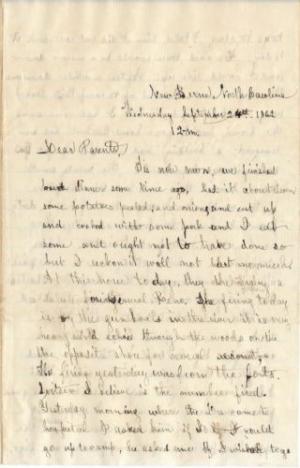 New Berne, North Carolina
Wednesday September 24th 1862
12 m.
Dear Parents,
Tis now noon, we finished
our dinner some time ago, had it about
some potatoes peeled, and onions, and cut up
and cooked with some pork and I eat
some and ought not to have done so
but I reckon it will not hurt me much
At this hour to day, they are firing a
Gun. The firing today
is on the gunboats in the river it is very
heavy and echoes through the woods on the
the opposite shore for several seconds
The firing yesterday was from the forts.
I believe is the number fired.
Yesterday morning when the Dr. came to
hospital I asked him if I could
go up to camp, he asked me if I wished to go